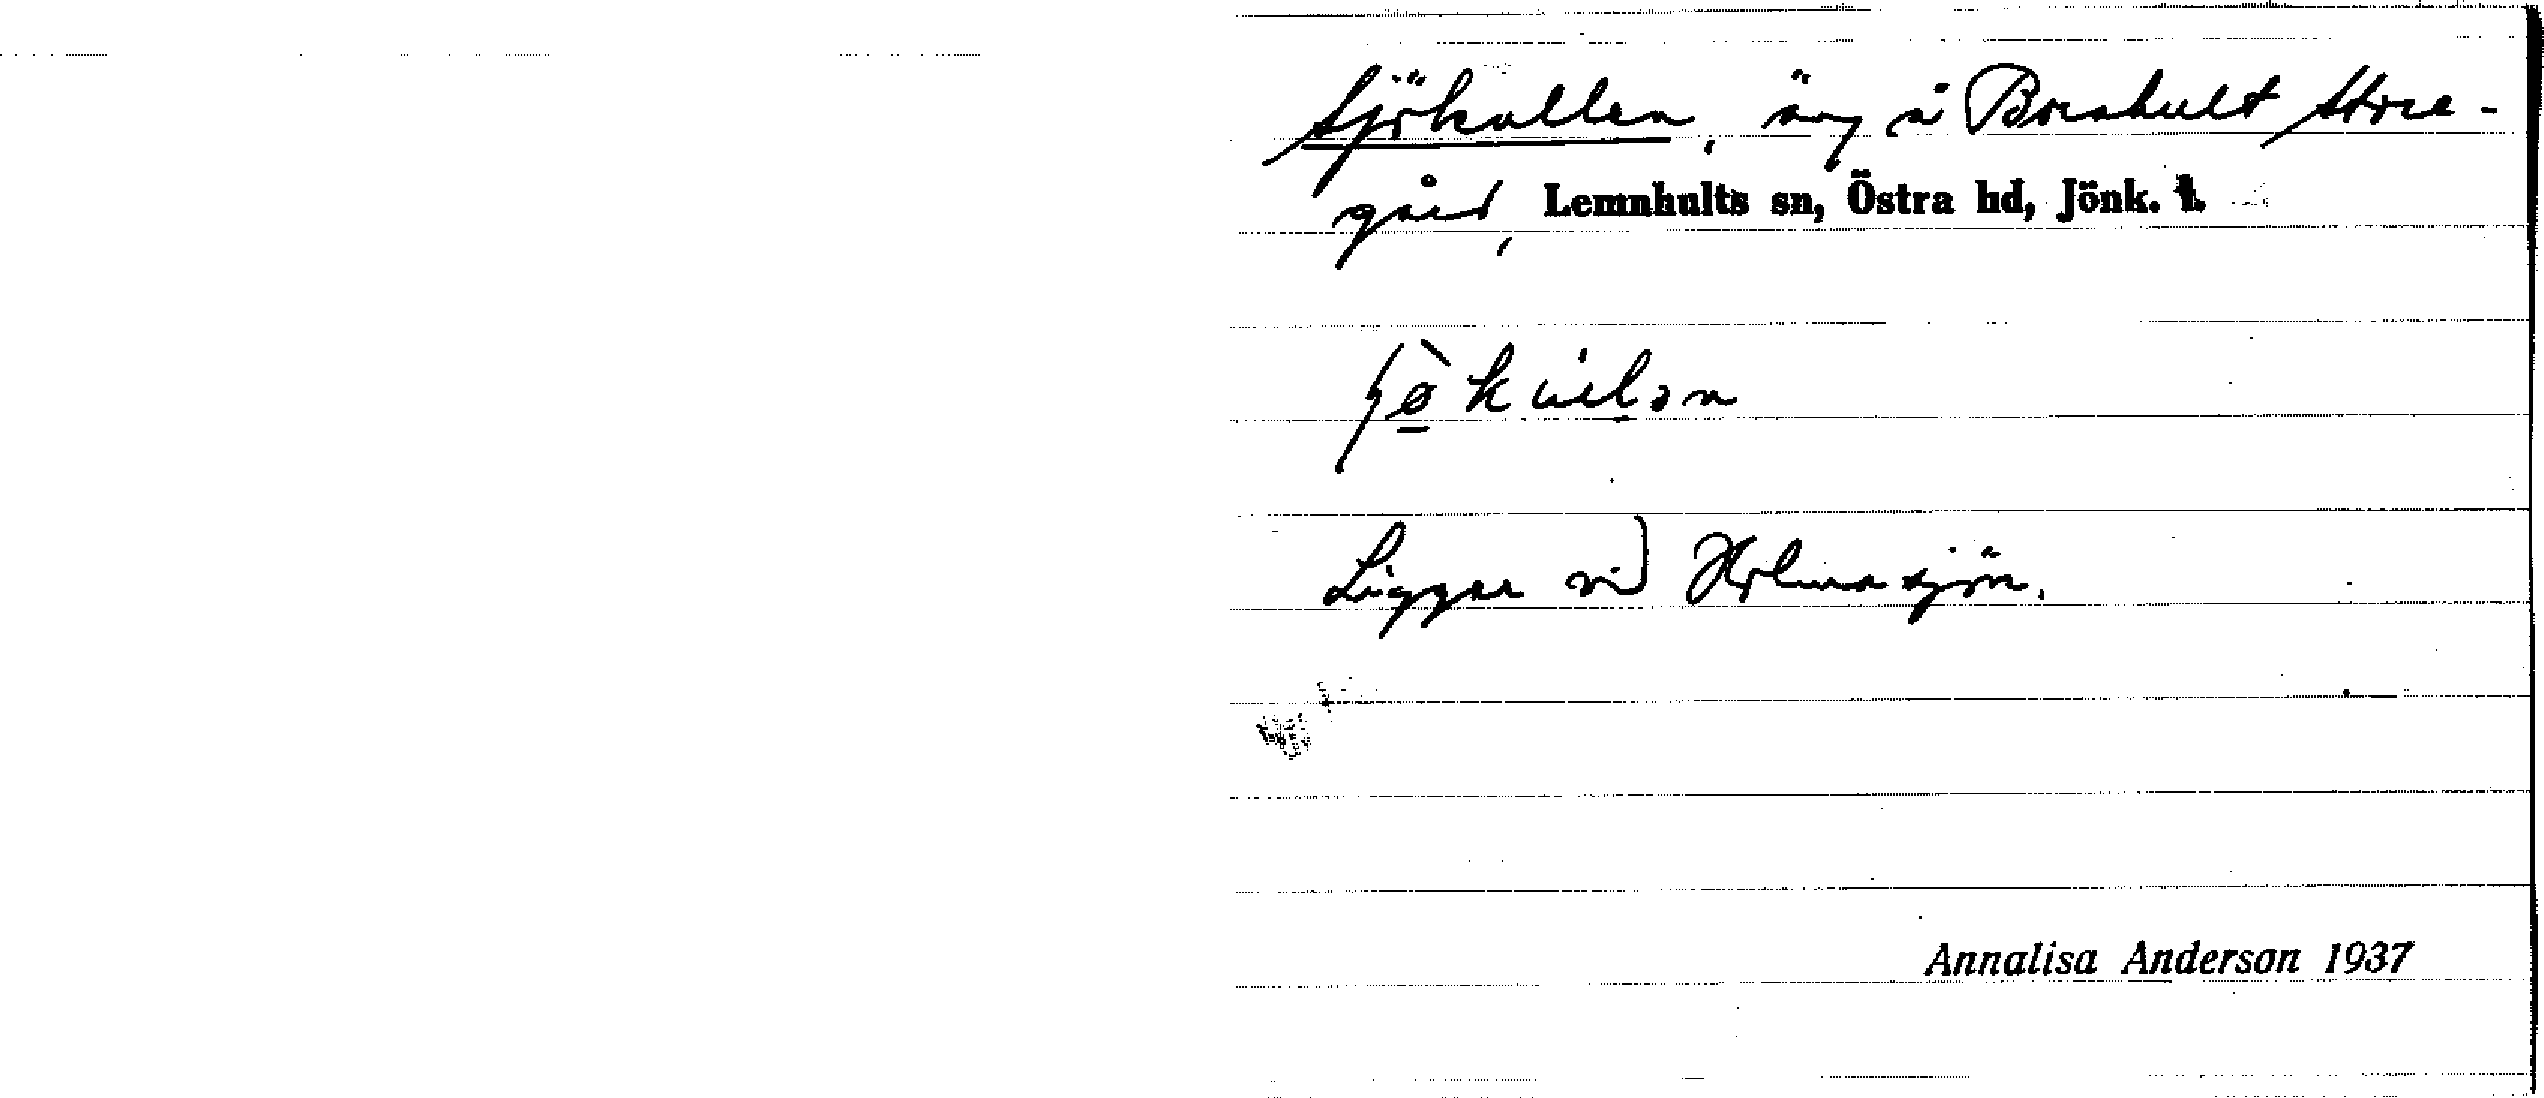 Sjökullen, äng å Boahult Store-
gård, Lemnhults sn, Östra hd, Jönk. l.
Ligger vid Holmasjön.
Annalisa Anderson 1937